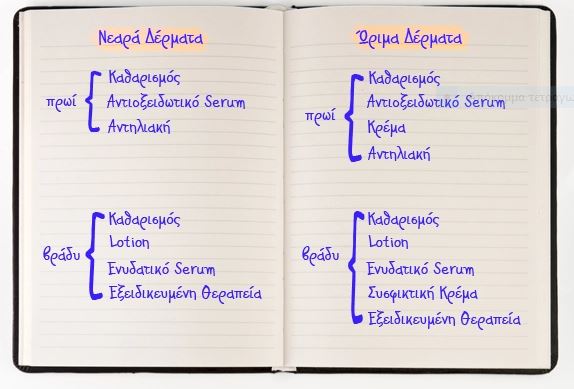 Νεαρά Δέρματα
πρωί
Καθαρισμός
Αντιοξειδωτικό Serum
Αντηλιακή
βράδυ
Καθαρισμός
Lotion
Ενυδατικό Serum
Εξειδικευμένη Θεραπεία
Ώριμα Δέρματα
πρωί
Καθαρισμός
Αντιοξειδωτικό Serum
Κρέμα
Αντηλιακή
βράδυ
Καθαρισμός
Lotion
Ενυδατικό Serum
Συσφικτική Κρέμα
Εξειδικευμένη Θεραπεία